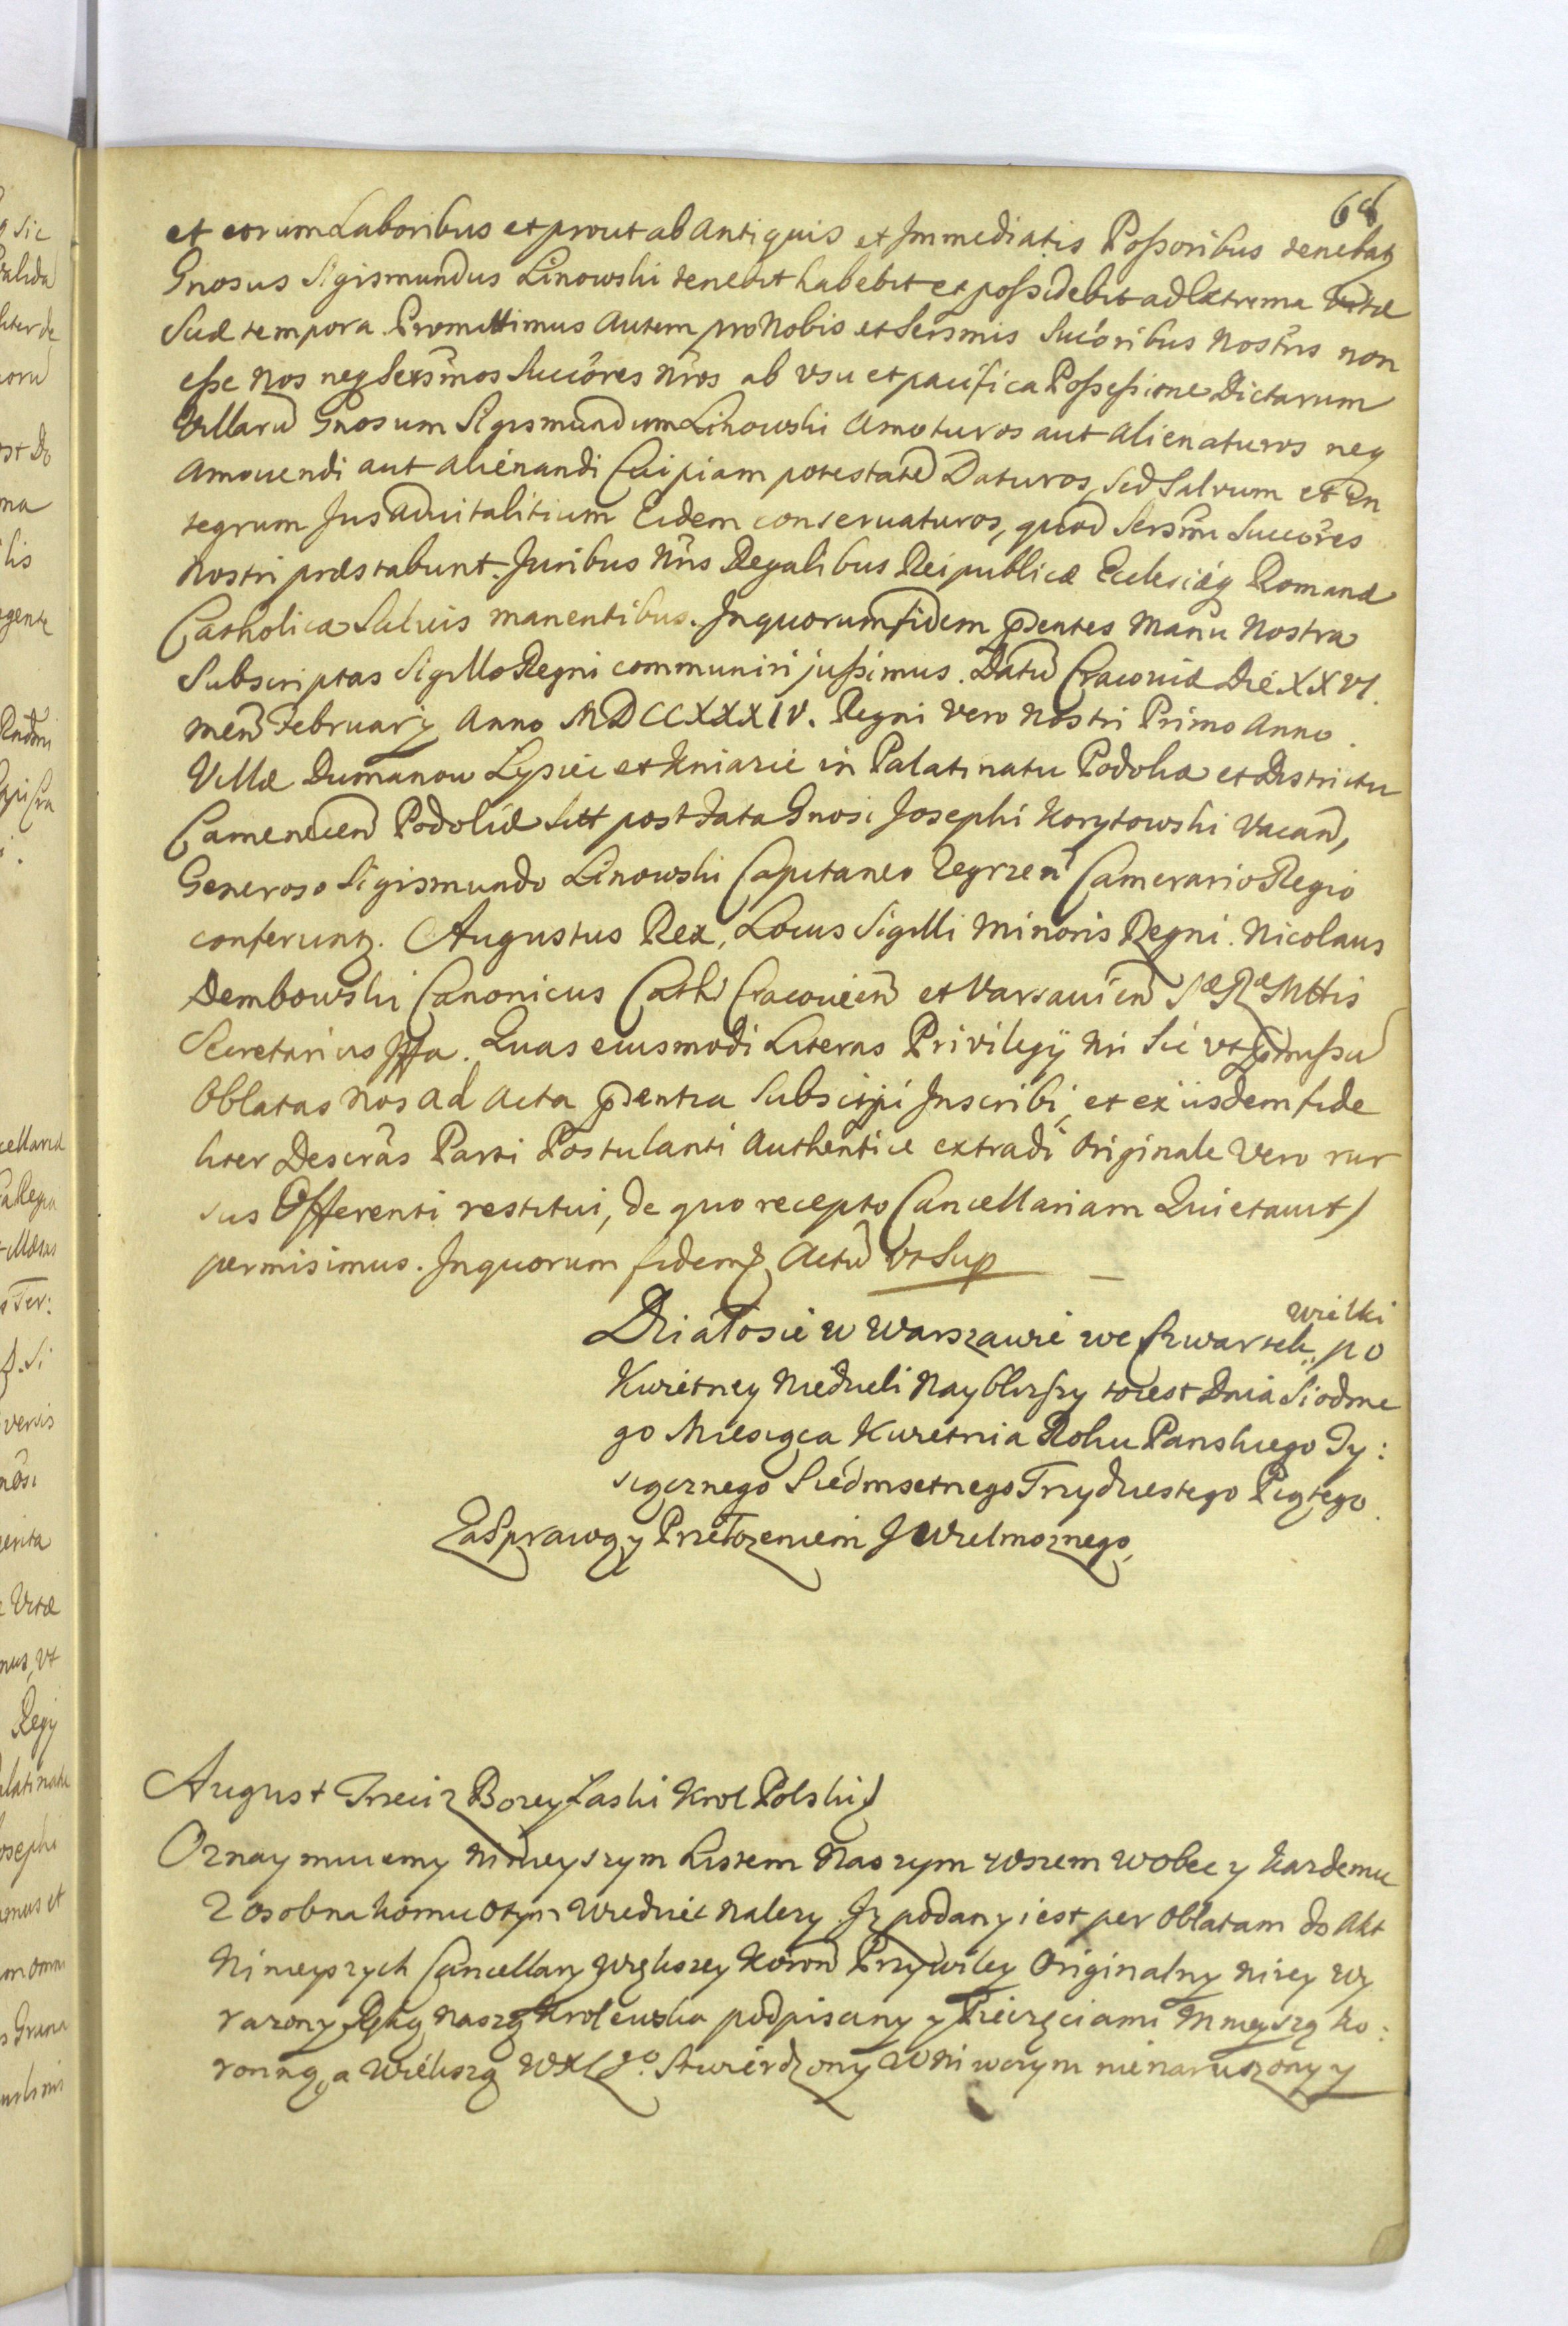 68
et eorum Laboribus et prout ab Antiquis et Immediatis Possoribus tenebatʒ
Gnosus Sigismundus Linowski tenebit habebit et possidebit ad Extrema Vitæ
Suæ tempora. Promittimus Autem pro Nobis et Sersmis Succoribus Nostris non
esse Nos neq Sersmos Succores Nros ab usu et pacifica Possessione Dictarum
Villarū Gnosum Sigismundum Linowski Amoturos aut Alienaturos neq
Amovendi aut Alienandi Cuipiam potestatē Daturos, Sed Salvum et In
tegrum Jus Advitalitium Eidem conservaturos, quod Sersmi Succores
Nostri præstabunt. Juribus Nris Regalibus Reipublicæ Ecclesiæq Romanæ
Catholicæ Salvis manentibus. In quorum fidem pñtes Manu Nostra
Subscriptas Sigillo Regni communiri jussimus. Datū Cracoviæ Die XXVI.
Men̄ February Anno MDCCXXXIV. Regni Vero Nostri Primo Anno.
Villæ Dumanow Lysiec et Kniazie in Palatinatu Podoliæ et Districtu
Camenecen̄ Podoliæ Sitt post Fata Gnosi Josephi Korytowski Vacan̄,
Generoso Sigismundo Linowski Capitaneo Zegrzen̄ Camerario Regio
conferuntʒ. Augustus Rex, Locus Sigilli Minoris Regni. Nicolaus
Dembowski Canonicus Cath Cracovien̄ et Varsavien̄ Sæ Ræ Mttis
Secretarius Mppa. Quas eiusmodi Literas Privilegÿ Nri Sic ut
Oblatas Nos ad Acta pñtia Subscipi Inscribi, et ex iisdem fide
liter Descras Parti Postulanti Authentice extradi Originale Vero rur
sus Offerenti restitui, de quo recepto Cancellariam Quietavit /
permisimus. In quorum fidem Actū ut Sup
Działosie w Warszawie we Czwartek wielki po
Kwietney Niedzieli Naybliższy toiest Dnia Siodme
go Miesiąca Kwietnia Roku Panskiego Ty:
siącznego Siedmsetnego Trzydziestego Piątego.
Za Sprawą y Przełożeniem J Wielmoznego,
August Trzeci z Bozey Łaski Krol Polski /
Oznaymuiemy Ninieyszym Listem Naszym wszem wobec y każdemu
z osobna komu otym wiedziec nalezy. Iz podany iest per Oblatam do Akt
Ninieyszych Cancellary Większey Koron̄ Przywiley Originalny nizey wy
razony Ręką Naszą Krolewska podpisany y Pieczęciami Mnieyszą Ko:
ronną, a Wiekszą WXLgo. Stwierdzony W Niwczym nienaruszony y